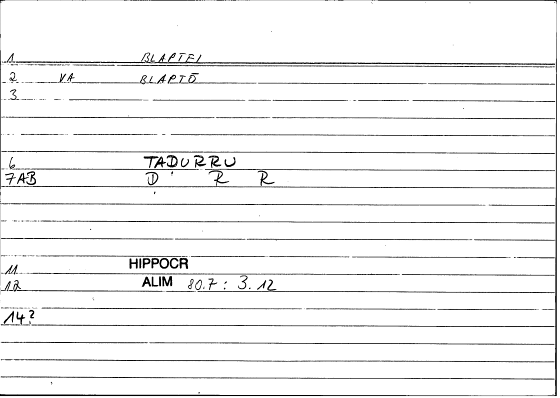 1 BLAPTEI
2 VA BLAPTŌ
3
6 TADURRU
7AB D ' R R
11 HIPPOCR
12 ALIM 80.7 : 3.12
14?